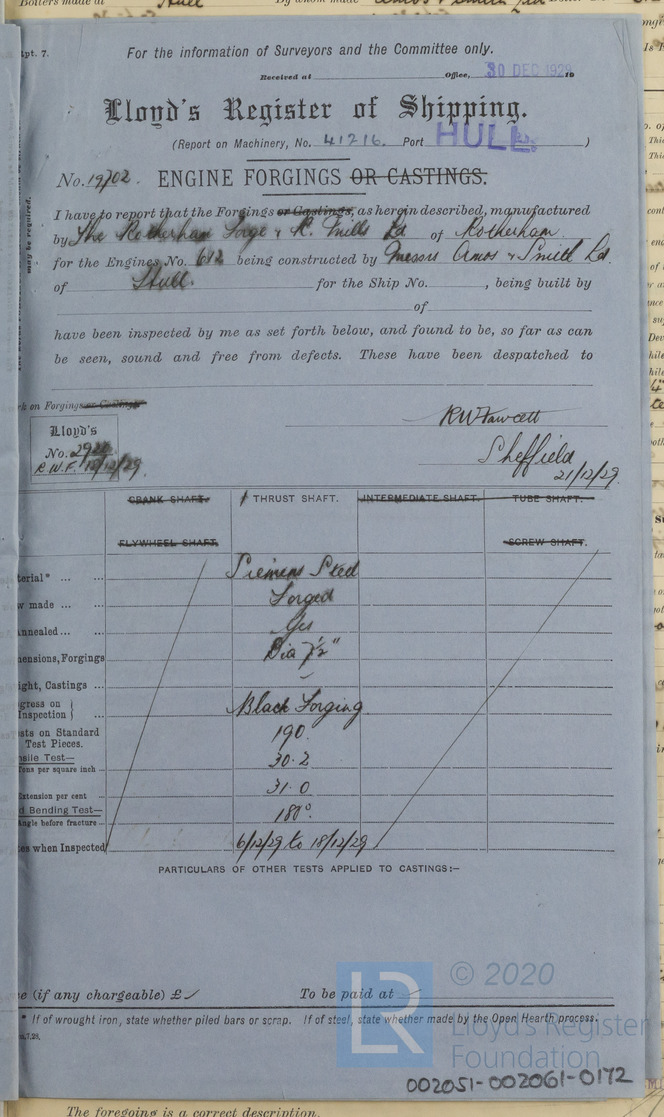 Boilers made at Hull By whom made
Rpt. 7.
For the information of Surveyors and the Committee only.
Received at Office, 30 DEC 1929 19
Lloyd's Register of Shipping.
(Report on Machinery, No. 41216. Port HULL )
may be required.
No. 19702. ENGINE FORGINGS OR CASTINGS.
I have to report that the Forgings or Castings, as herein described, manufactured
by The Rotherham Forge & R. Mills Ld of Rotherham
for the Engines No. 612 being constructed by Messrs Amos & Smith Ld.
of Hull. for the Ship No. , being built by
of
have been inspected by me as set forth below, and found to be, so far as can
be seen, sound and free from defects. These have been despatched to
k on Forgings or Castings
RW Fawcett
Sheffield
21/12/29.
Lloyd's
No.
R.W.F. 18/12/29.
CRANK SHAFT. 1 THRUST SHAFT. INTERMEDIATE SHAFT. TUBE SHAFT.
FLYWHEEL SHAFT. SCREW SHAFT.
terial* ... ... Siemens Steel
w made ... ... Forged
nnealed ... ... Yes
ensions, Forgings Dia 7½"
ight, Castings ... –
gress on Inspection } Black Forging
sts on Standard Test Pieces. 190.
sile Test—
Tons per square inch 30.2
Extension per cent 31.0
d Bending Test—
Angle before fracture 180°.
es when Inspected 6/12/29 to 18/12/29
PARTICULARS OF OTHER TESTS APPLIED TO CASTINGS:—
e (if any chargeable) £ To be paid at
* If of wrought iron, state whether piled bars or scrap. If of steel, state whether made by the Open Hearth process.
m,7,28.
LR
© 2020
Lloyd's Register
Foundation
002051-002061-0172
The foregoing is a correct description.